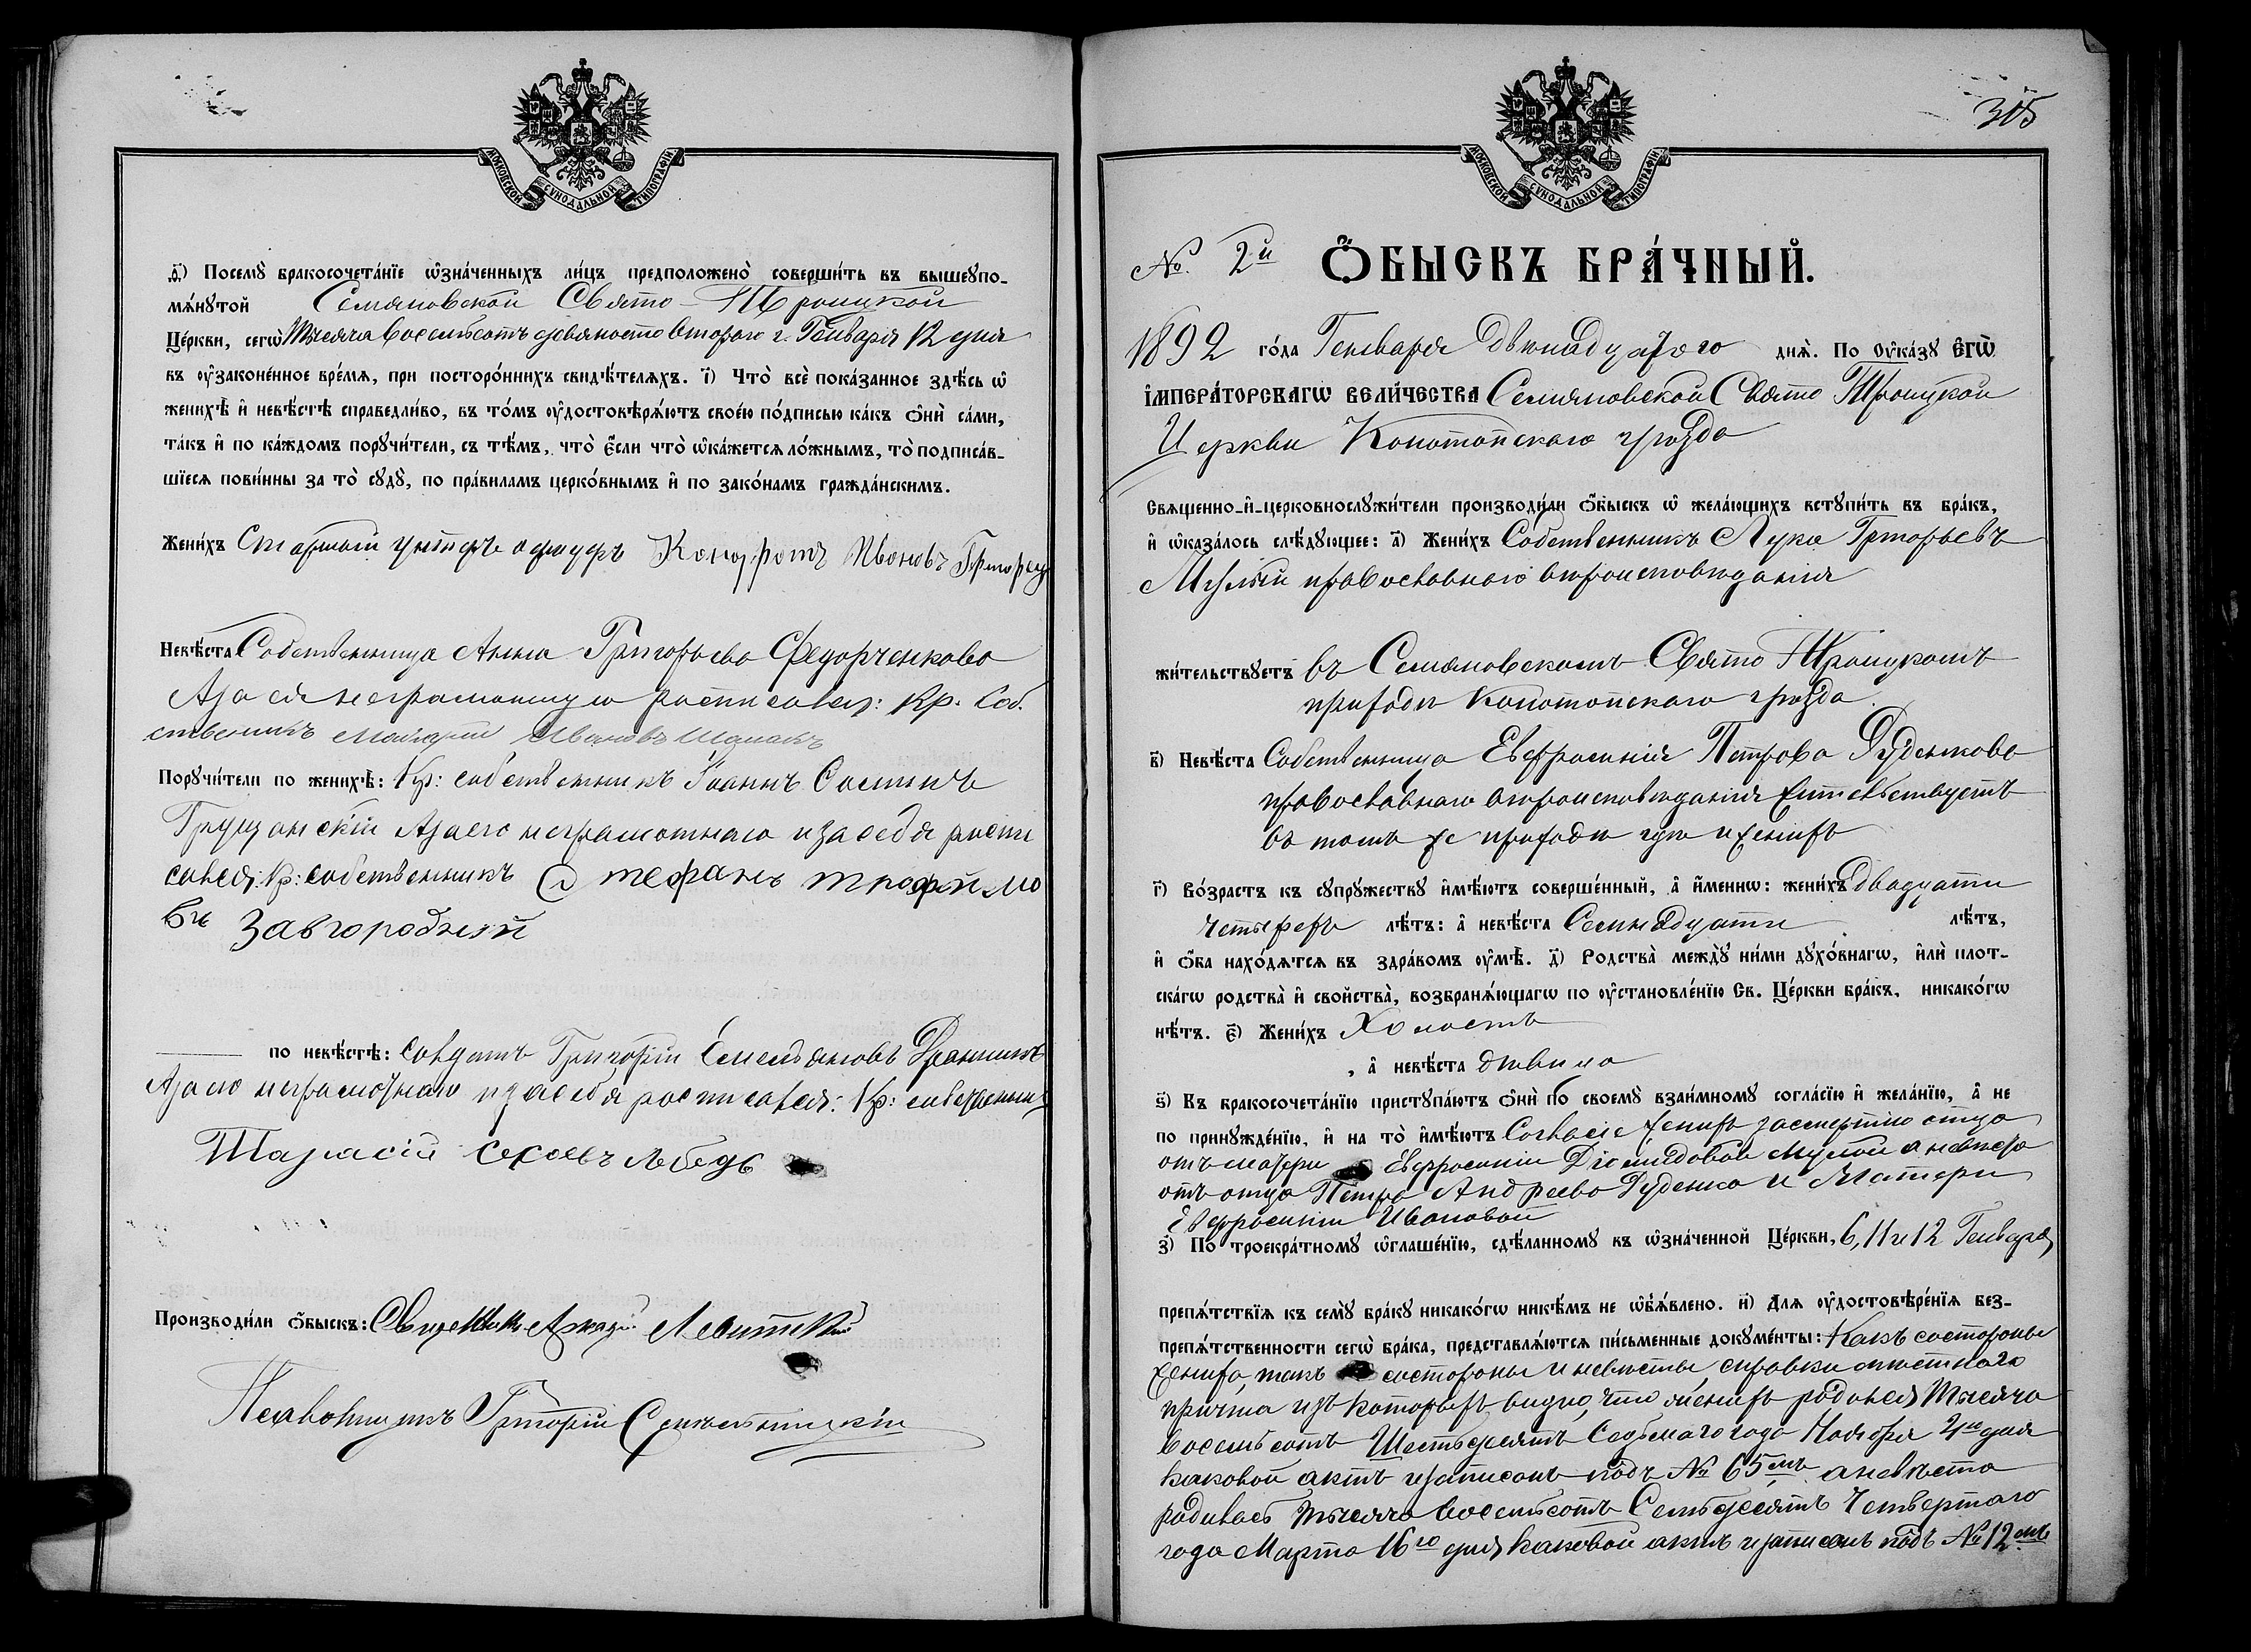 МОСКОВСКОЙ СѴНОДАЛЬНОЙ ТИПОГРАФІИ
д҃) Посемꙋ̀ бракосочета́нїе ѡ҆зна́ченныхъ ли́цъ предположено̀ соверши́ть въ вышеꙋпо-
мѧ́нꙋтой Семяновской Свято-Троицкой
Це́ркви, сегѡ̀ Тысяча восемьсотъ девяносто втораго г. Генваря 12 дня
въ ᲂу҆зако́ненное вре́мѧ, при посторо́ннихъ свидѣ́телѧхъ. і҃) Что̀ всѐ пока́занное здѣ́сь ѡ҆
женихѣ̀ и҆ невѣ́стѣ справедли́во, въ то́мъ ᲂу҆достовѣрѧ́ютъ свое́ю по́дписью ка́къ ѻ҆нѝ са́ми,
та́къ и҆ по ка́ждомъ порꙋчи́тели, съ тѣ́мъ, что̀ є҆́сли что̀ ѡ҆ка́жетсѧ ло́жнымъ, то̀ подписа́в-
шїесѧ пови́нны за то̀ сꙋдꙋ̀, по пра́виламъ церко́внымъ и҆ по зако́намъ гражда́нскимъ.
Жени́хъ Старшій унтеръ офицеръ Кондратъ Ивановъ
Невѣ́ста Собственница Анна Григорьева Федорченкова
А за ея неграмотную росписался: Кр. Соб.
ственникъ Ивановъ
Порꙋчи́тели по женихѣ̀: Кр: собственникъ Іоаннъ
А за его неграмотнаго и за себя роспи
сался: Кр: собственникъ Стефанъ Трофимо
въ Завгородній
по невѣ́стѣ: солдатъ Григорій Емельяновъ
А за его неграмотнаго и за себя росписался: Кр:
Тарасій Лебедь
Производи́ли ѻ҆́быскъ: Священникъ Аркадій Левитскій
Псаломщикъ Григорій
305
МОСКОВСКОЙ СѴНОДАЛЬНОЙ ТИПОГРАФІИ
№. 2й Ѻ҆́БЫСКЪ БРА́ЧНЫЙ.
1892 го́да Генваря двенадцатого днѧ̀. По ᲂу҆ка́зꙋ є҆гѡ̀
і҆мпера́торскагѡ вели́чества Семяновской Свято Троицкой
Церкви Конотопскаго уѣзда
Свѧщенно-и҆-церковнослꙋжи́тели производи́ли ѻ҆́быскъ ѡ҆ жела́ющихъ встꙋпи́ть въ бра́къ,
и҆ ѡ҆каза́лось слѣ́дꙋющее: а҃) Жени́хъ Собственникъ Лука Григорьевъ
православнаго вѣроисповѣданія
жи́тельствꙋетъ въ Семяновскомъ Свято Троицкомъ
приходѣ Конотопскаго уѣзда
в҃) Невѣ́ста Собственница Евфросинія Петрова Руденкова
православнаго вѣроисповѣданія жительствуетъ
въ томъ же приходѣ гдѣ и женихъ
г҃) Во́зрастъ къ сꙋпрꙋ́жествꙋ и҆мѣ́ютъ соверше́нный, а҆ и҆́меннѡ: жени́хъ двадцати
четырехъ лѣ́тъ: а҆ невѣ́ста Семнадцати лѣ́тъ,
и҆ ѻ҆́ба нахо́дѧтсѧ въ здра́вомъ ᲂу҆мѣ̀. д҃) Родства̀ междꙋ̀ ни́ми дꙋхо́внагѡ, и҆лѝ плот-
ска́гѡ родства̀ и҆ свойства̀, возбранѧ́ющагѡ по ᲂу҆становле́нїю Св. Це́ркви бра́къ, никако́гѡ
нѣ́тъ. є҃) Жени́хъ Холостъ
, а҆ невѣ́ста дѣвица
ѕ҃) Къ бракосочета́нїю пристꙋпа́ютъ ѻ҆нѝ по своемꙋ̀ взаи́мномꙋ согла́сїю и҆ жела́нїю, а҆ не
по принꙋжде́нїю, и҆ на то̀ и҆мѣ́ютъ Согласіе женихъ за смертію отца
отъ матери Евфросиніи Діомидовой а невѣста
отъ отца Петра Андреева Руденка и Матери
Евфросиніи Ивановой
з҃) По троекра́тномꙋ ѡ҆глаше́нїю, сдѣ́ланномꙋ въ ѡ҆зна́ченной Це́ркви, 6, 11 и 12 Генваря,
препѧ́тствїѧ къ семꙋ̀ бра́кꙋ никако́гѡ никѣ́мъ не ѡ҆б̾ѧ́влено. и҃) Длѧ ᲂу҆достовѣре́нїѧ без-
препѧ́тственности сегѡ̀ бра́ка, представлѧ́ютсѧ пи́сьменные докꙋме́нты: Какъ состороны
жениха, такъ состороны и невѣсты, справки мѣстнаго
причта изъ которыхъ видно, что женихъ родился Тысяча
восемьсотъ Шестьдесятъ Седьмаго года Ноября дня
каковой актъ и записанъ подъ № 65мъ, а невѣста
родилась тысяча восемьсотъ Семьдесятъ Четвертаго
года Марта 16го дня, каковой актъ и записанъ подъ № 12мъ